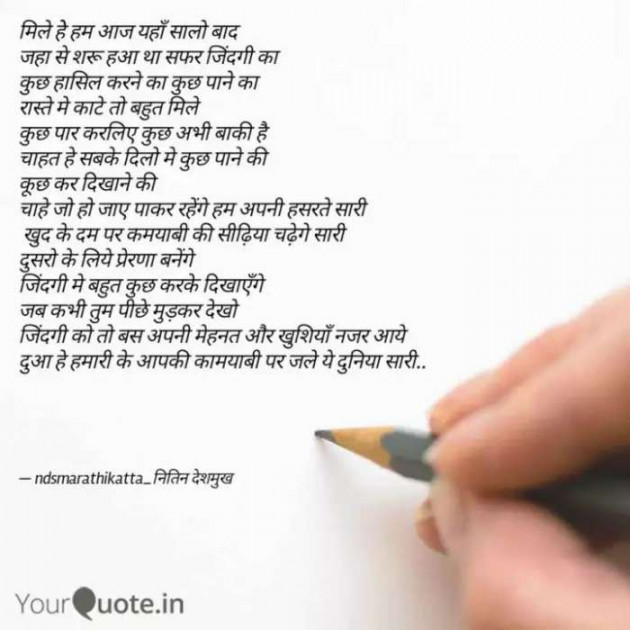 मिले हेै हम आज यहाँ सालो बाद
जहा से शरू हआ था सफर जिंदगी का
कुछ हासिल करने का कुछ पाने का
रास्ते मे काटे तो बहुत मिले
कुछ पार करलिए कुछ अभी बाकी है
चाहत हे सबके दिलो मे कुछ पाने की
कूछ कर दिखाने की
चाहे जो हो जाए पाकर रहेंगे हम अपनी हसरते सारी
खुद के दम पर कमयाबी की सीढ़िया चढ़ेगे सारी
दुसरो के लिये प्रेरणा बनेंगे
जिंदगी मे बहुत कुछ करके दिखाएँगे
जब कभी तुम पीछे मुड़कर देखो
जिंदगी को तो बस अपनी मेहनत और खुशियाँ नजर आये
दुआ हे हमारी के आपकी कामयाबी पर जले ये दुनिया सारी..
— ndsmarathikatta_नितिन देशमुख
YourQuote.in